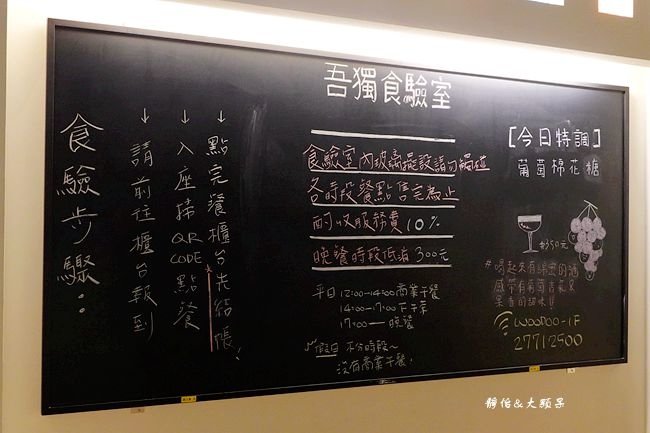 吾獨食驗室
食驗步驟：
↓請前往櫃台報到
↓入座掃QR CODE點餐
↓點完餐櫃台先結帳！
食驗室內玻璃擺設請勿觸碰
各時段餐點售完為止
酌收服務費10%
晚餐時段低消300元
平日 12:00-14:00商業午餐
14:00-17:00下午茶
17:00—晚餐
假日 不分時段~
沒有商業午餐！
[今日特調]
葡萄棉花糖
$350元
#喝起來有綿密的酒
感帶有葡萄
果香的甜味!!
WOODOO-1F
27712500
靜怡&大顆呆